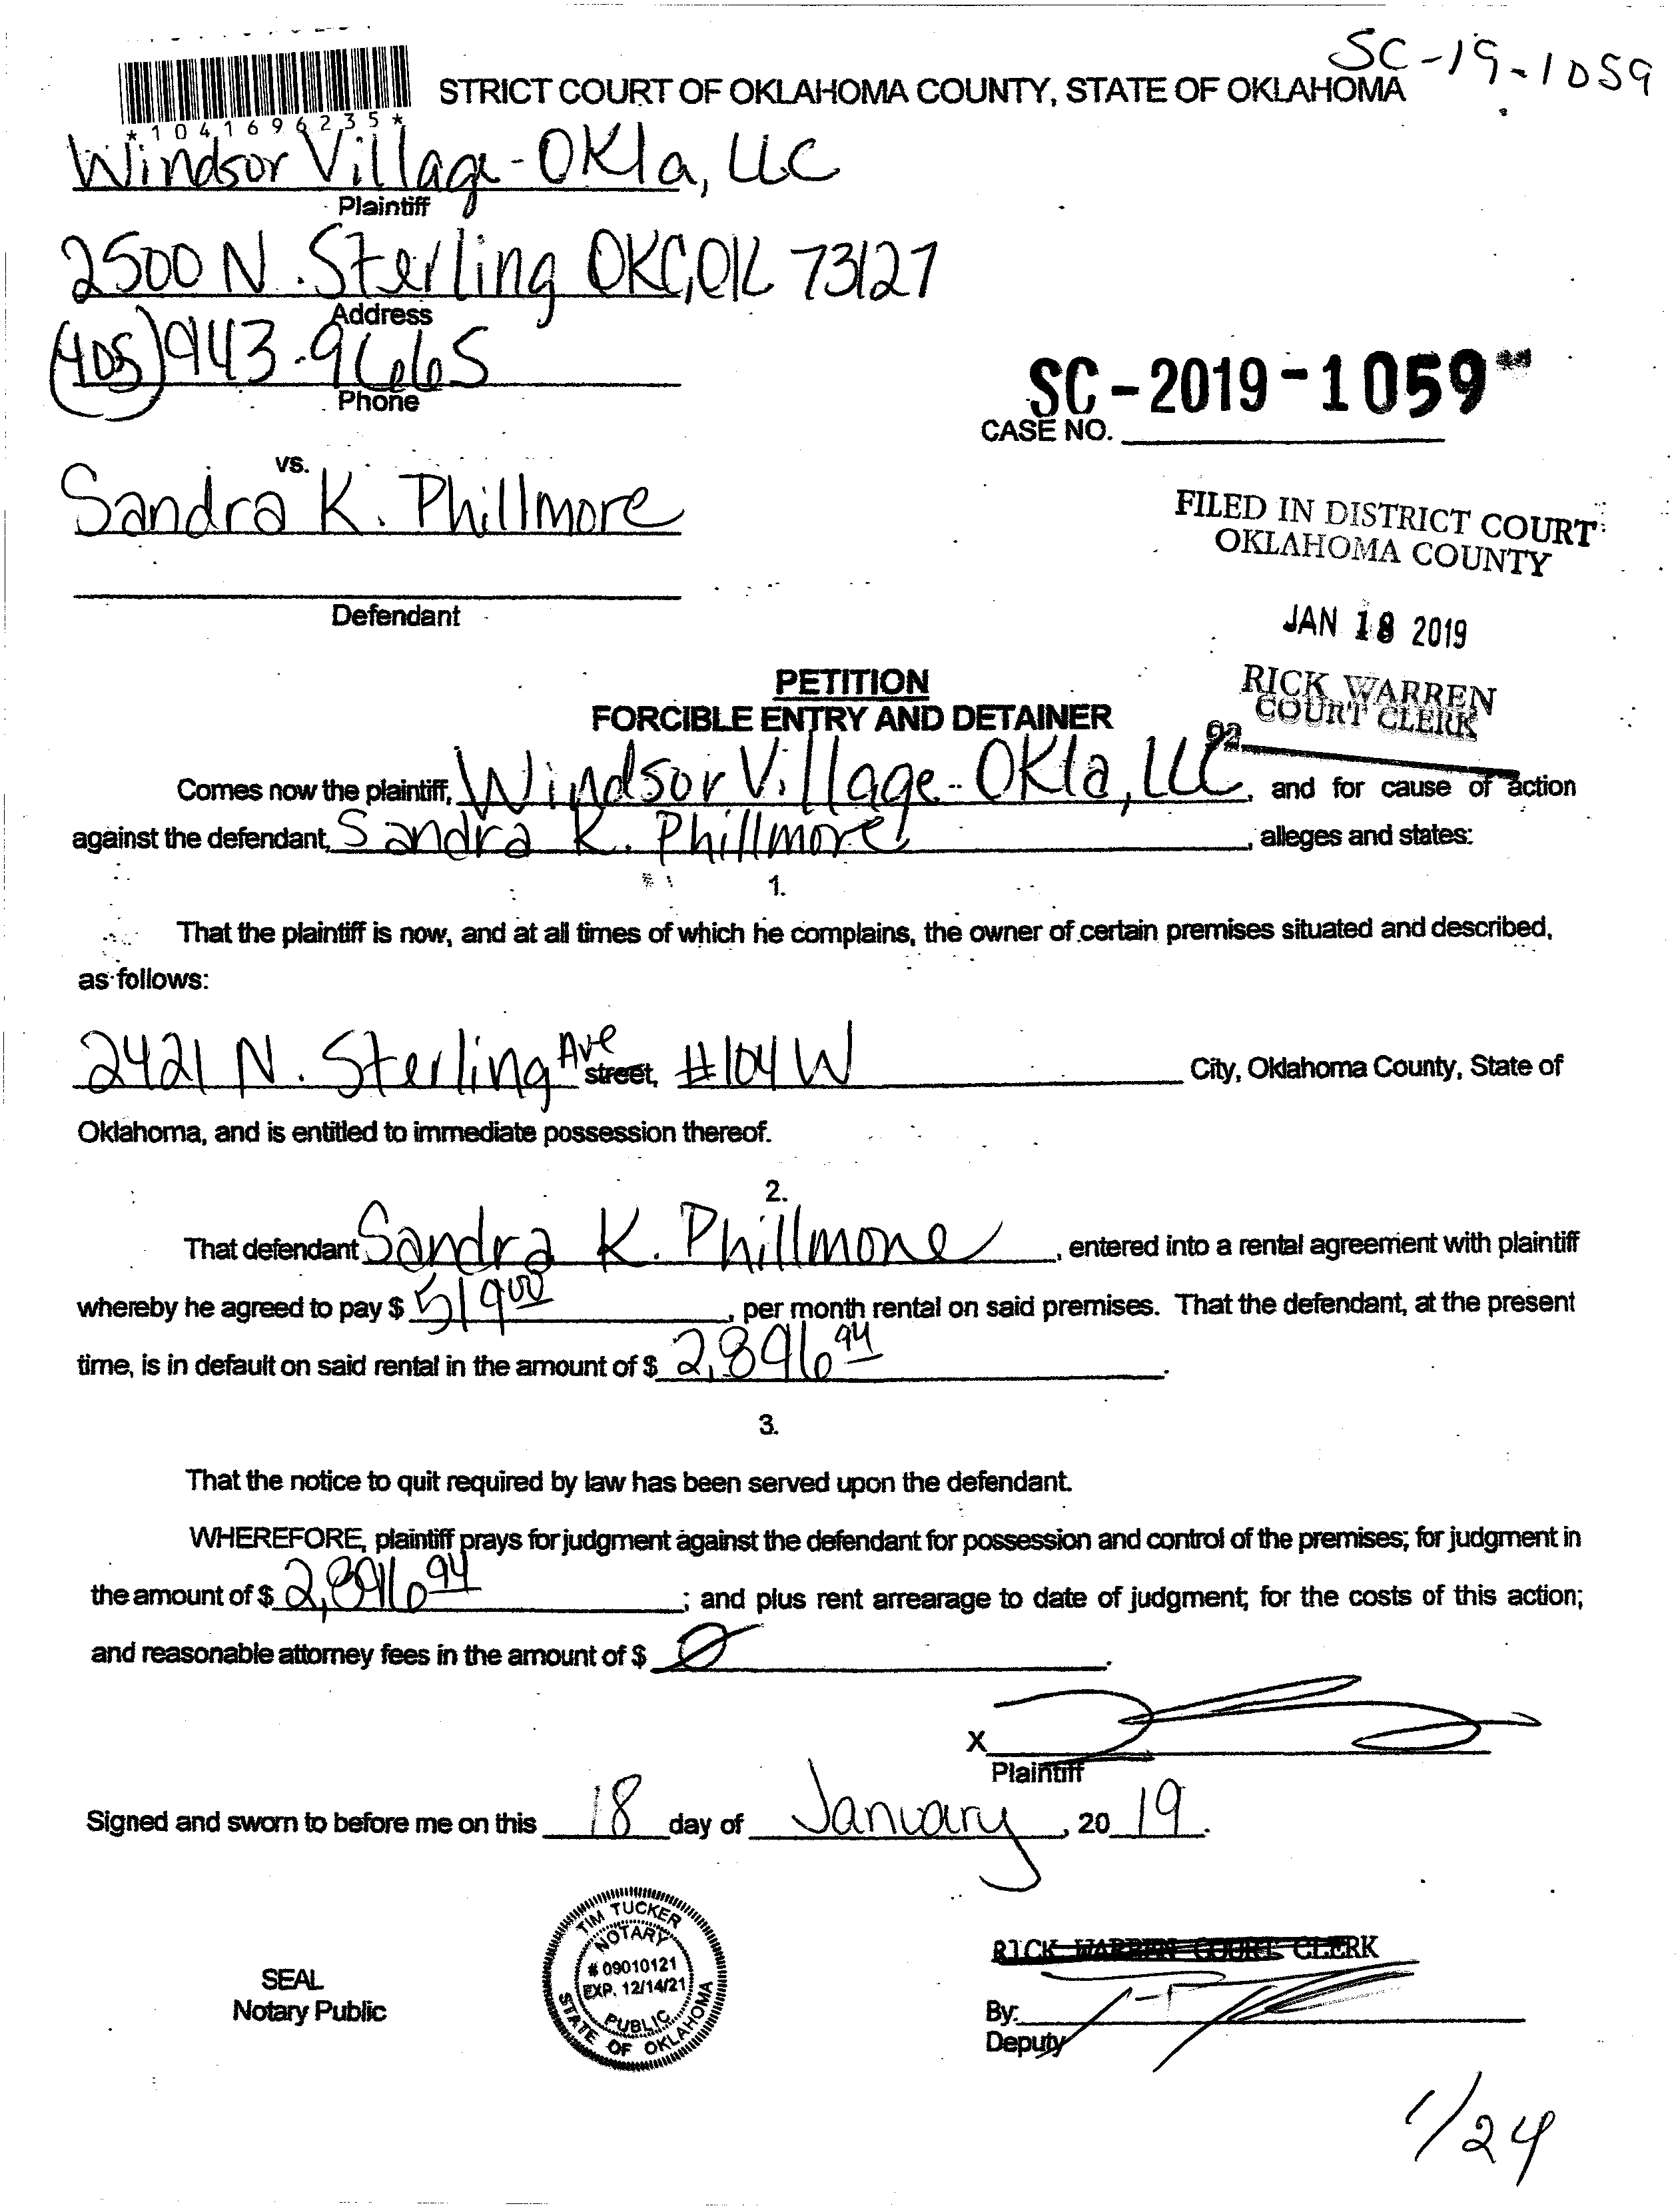 SC-19-1059
STRICT COURT OF OKLAHOMA COUNTY, STATE OF OKLAHOMA
*1041696235*
Windsor Village-Okla, LLC
Plaintiff
2500 N. Sterling OKC, OK 73127
Address
(405) 943-9665
Phone
SC-2019-1059
CASE NO.
vs.
Sandra K. Phillmore
FILED IN DISTRICT COURT
OKLAHOMA COUNTY
Defendant
JAN 18 2019
RICK WARREN
COURT CLERK
92
PETITION
FORCIBLE ENTRY AND DETAINER
Comes now the plaintiff, Windsor Village-Okla, LLC, and for cause of action
against the defendant, Sandra K. Phillmore, alleges and states:
1.
That the plaintiff is now, and at all times of which he complains, the owner of certain premises situated and described,
as follows:
2421 N. Sterling Ave street, #104 W City, Oklahoma County, State of
Oklahoma, and is entitled to immediate possession thereof.
2.
That defendant Sandra K. Phillmore, entered into a rental agreement with plaintiff
whereby he agreed to pay $ 519.00, per month rental on said premises. That the defendant, at the present
time, is in default on said rental in the amount of $ 2,896 94.
3.
That the notice to quit required by law has been served upon the defendant.
WHEREFORE, plaintiff prays for judgment against the defendant for possession and control of the premises; for judgment in
the amount of $ 2,896 94; and plus rent arrearage to date of judgment; for the costs of this action;
and reasonable attorney fees in the amount of $ Ø.
X
Plaintiff
Signed and sworn to before me on this 18 day of January, 20 19.
TIM TUCKER
NOTARY
# 09010121
EXP. 12/14/21
PUBLIC
STATE OF OKLAHOMA
SEAL
Notary Public
RICK WARREN COURT CLERK
By:
Deputy
1/24